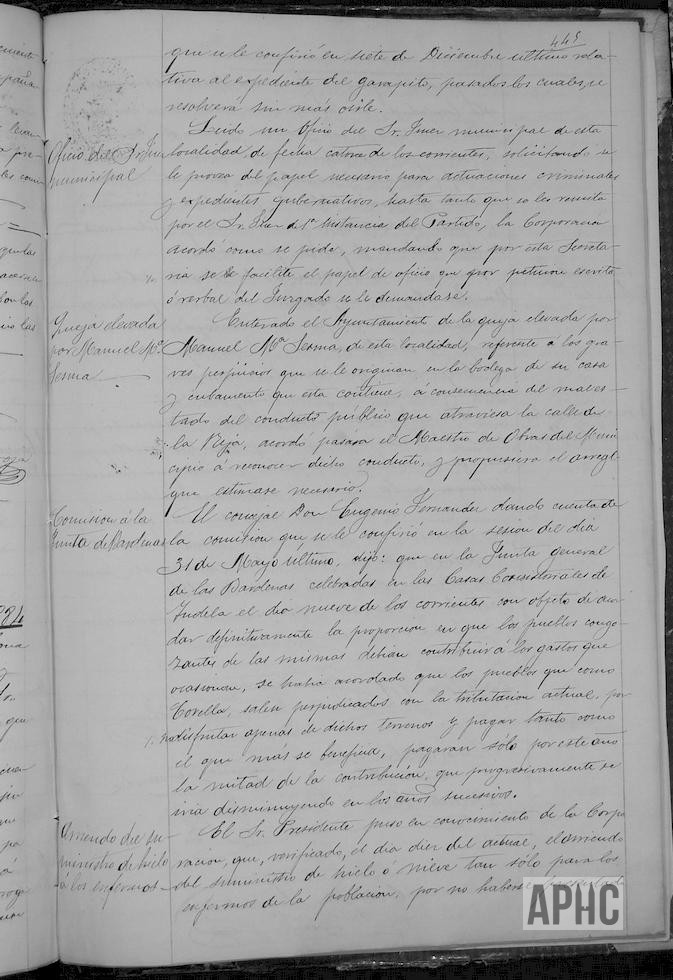 445
que se le confirió en siete de Diciembre último rela-
tiva al expediente del garapito, pasados los cuales, se
resolverá sin más oirle.
Oficio del Sr Juez
municipal
Leido un oficio del Sr. Juez municipal de esta
localidad, de fecha catorce de los corrientes, solicitando se
le provea del papel necesario para actuaciones criminales
y expedientes gubernativos, hasta tanto que se les remita
por el Sr. Juez de 1ª instancia del Partido, la Corporacion
acordó como se pide, mandando que por esta Secreta-
ria se le facilite el papel de oficio que por peticion escrita
ó verbal del Juzgado se le demandase.
Queja elevada
por Manuel Mª
Sesma
Enterado el Ayuntamiento de la queja elevada por
Manuel Mª Sesma, de esta localidad, referente á los gra-
ves perjuicios que se le originan en la bodega de su casa
y cubamento que esta contiene, á consecuencia del mal es-
tado del conducto público que atraviesa la calle de
la Reja, acordó pasara el Maestro de Obras del Muni
cipio á reconocer dicho conducto, y propusiera el arreglo
que estimase necesario.
Comision á la
Junta de Bardenas
El concejal Don Eugenio Fernandez dando cuenta de
la comision que se le confirió en la sesion del dia
31 de Mayo último, dijo: que en la Junta general
de las Bardenas celebradas en las Casas Consistoriales de
Tudela el dia nueve de los corrientes con objeto de acor
dar definitivamente la proporcion en que los pueblos congo-
zantes de las mismas debian contribuir á los gastos que
ocasionan, se habia acordado que los pueblos que como
Corella, salen perjudicados con la tributacion actual, por
no disfrutar apenas de dichos terrenos y pagar tanto como
el que más se beneficia, pagaran sólo por este año
la mitad de la contribucion, que progresivamente se
iria disminuyendo en los años sucesivos.
Arriendo del su-
ministro de hielo
á los enfermos
El Sr. Presidente puso en conocimiento de la Corpo
racion, que, verificado, el dia diez del actual, el arriendo
del suministro de hielo ó nieve tan sólo para los
enfermos de la poblacion, por no haberse
APHC